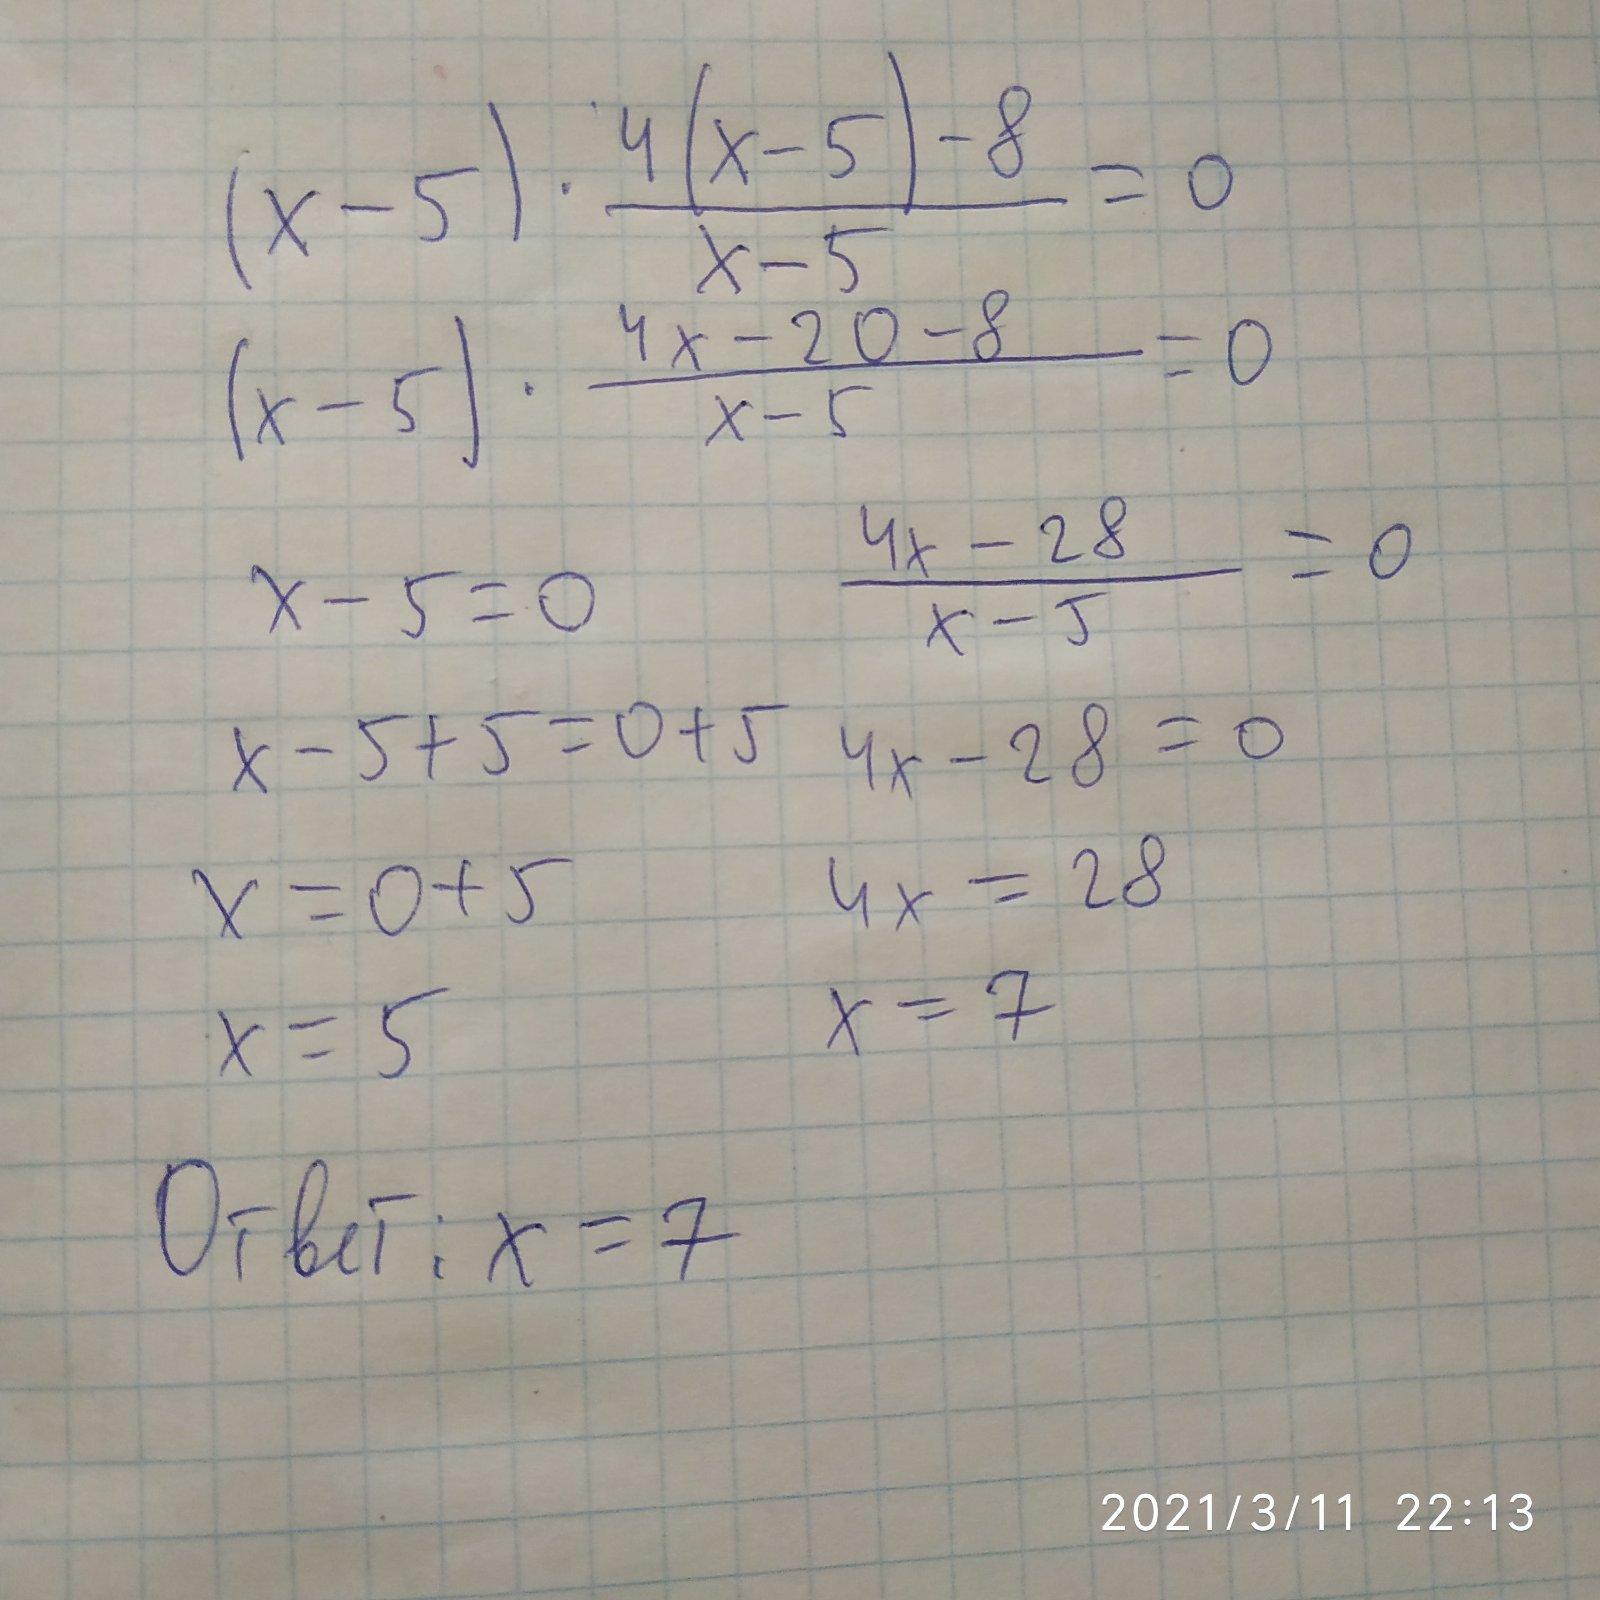 (x-5) · 4(x-5)-8 / x-5 = 0
(x-5) · 4x-20-8 / x-5 = 0
x-5=0
4x-28 / x-5 = 0
x-5+5=0+5
4x-28=0
x=0+5
4x=28
x=5
x=7
Ответ: x=7
2021/3/11 22:13